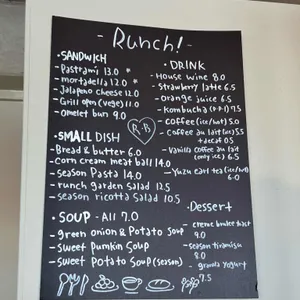 - Runch! -
· SANDWICH
- Pastrami 13.0 *
- mortadella 12.0 *
- Jalapeno cheese 12.0
- Grill open (vege) 11.0
- Omelet bun 9.0
R+B
· DRINK
- House wine 8.0
- Strawberry latte 6.5
- Orange juice 6.5
- Kombucha 7.5
- coffee (ice/hot) 5.0
- Coffee au lait (ice) 5.5
+decaf 0.5
- Vanilla coffee au lait
(only ice) 6.5
- Yuzu earl tea (ice/hot)
6.0
· SMALL DISH
- Bread & butter 6.0
- corn cream meat ball 14.0
- season Pasta 14.0
- runch garden salad 12.5
- season ricotta salad 10.5
· SOUP - All 7.0
- green onion & Potato soup
- sweet pumkin soup
- sweet potato soup (season)
· Dessert
- creme brulee toast
9.0
- season tiramisu
8.0
- granola yogurt
7.5